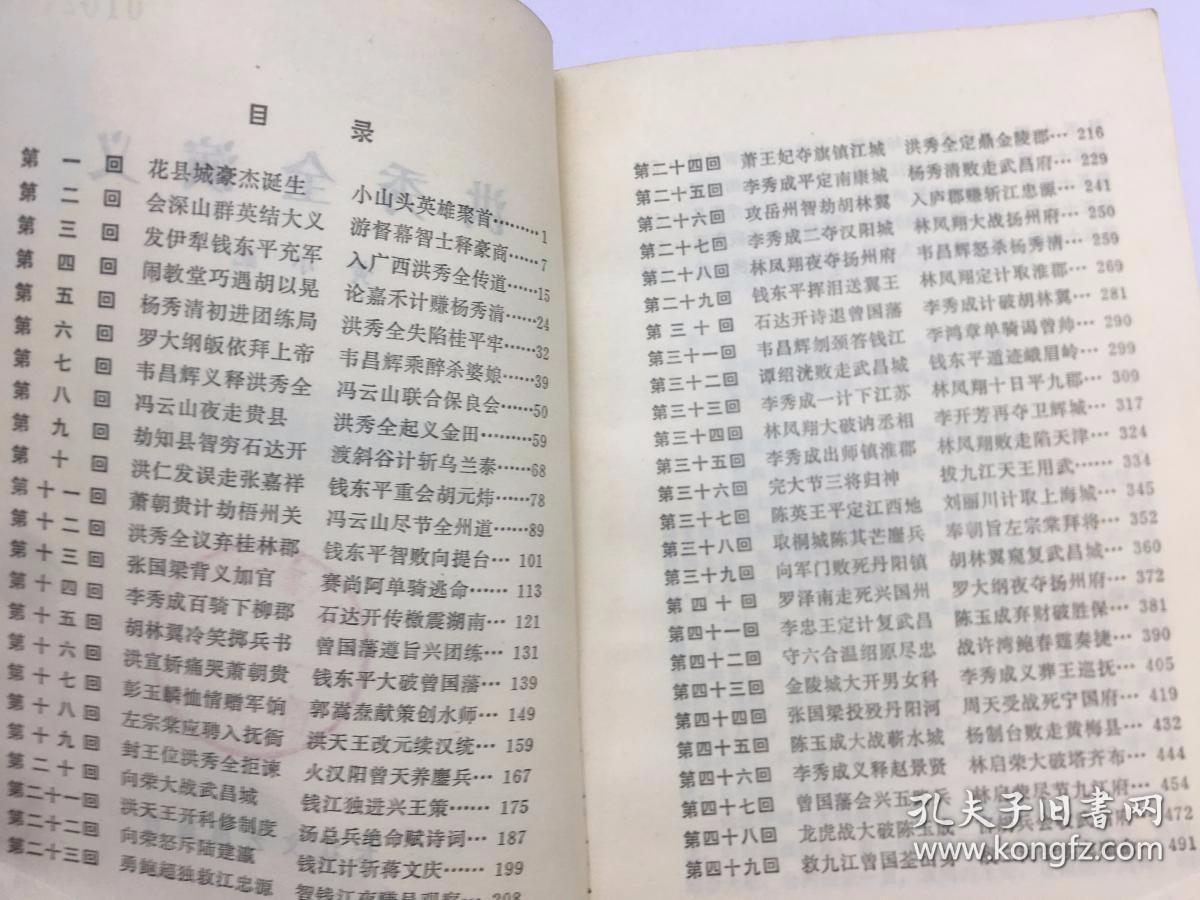 目 录
第一回 花县城豪杰诞生 小山头英雄聚首……1
第二回 会深山群英结大义 游督幕智士释豪商……7
第三回 发伊犁钱东平充军 入广西洪秀全传道……15
第四回 闹教堂巧遇胡以晃 论嘉禾计赚杨秀清……24
第五回 杨秀清初进团练局 洪秀全失陷桂平牢……32
第六回 罗大纲皈依拜上帝 韦昌辉乘醉杀婆娘……39
第七回 韦昌辉义释洪秀全 冯云山联合保良会……50
第八回 冯云山夜走贵县 洪秀全起义金田……59
第九回 劫知县智穷石达开 渡斜谷计斩乌兰泰……68
第十回 洪仁发误走张嘉祥 钱东平重会胡元炜……78
第十一回 萧朝贵计劫梧州关 冯云山尽节全州道……89
第十二回 洪秀全议弃桂林郡 钱东平智败向提台…101
第十三回 张国梁背义加官 赛尚阿单骑逃命……113
第十四回 李秀成百骑下柳郡 石达开传檄震湖南…121
第十五回 胡林翼冷笑掷兵书 曾国藩遵旨兴团练…131
第十六回 洪宣娇痛哭萧朝贵 钱东平大破曾国藩…139
第十七回 彭玉麟恤情赠军饷 郭嵩焘献策创水师…149
第十八回 左宗棠应聘入抚衙 洪天王改元续汉统…159
第十九回 封王位洪秀全拒谏 火汉阳曾天养鏖兵…167
第二十回 向荣大战武昌城 钱江独进兴王策……175
第二十一回 洪天王开科修制度 汤总兵绝命赋诗词…187
第二十二回 向荣怒斥陆建瀛 钱江计斩蒋文庆……199
第二十三回 勇鲍超独救江忠源 智钱江夜赚吴观察…208
第二十四回 萧王妃夺旗镇江城 洪秀全定鼎金陵郡…216
第二十五回 李秀成平定南康城 杨秀清败走武昌府…229
第二十六回 攻岳州智劫胡林翼 入庐郡赚斩江忠源…241
第二十七回 李秀成二夺汉阳城 林凤翔大战扬州府…250
第二十八回 林凤翔夜夺扬州府 韦昌辉怒杀杨秀清…259
第二十九回 钱东平挥泪送翼王 林凤翔定计取淮郡…269
第三十回 石达开诗退曾国藩 李秀成计破胡林翼…281
第三十一回 韦昌辉刎颈答钱江 李鸿章单骑谒曾帅…290
第三十二回 谭绍洸败走武昌城 钱东平遁迹峨眉岭…299
第三十三回 李秀成一计下江苏 林凤翔十日平九郡…309
第三十四回 林凤翔大破讷丞相 李开芳再夺卫辉城…317
第三十五回 李秀成出师镇淮郡 林凤翔败走陷天津…324
第三十六回 完大节三将归神 拔九江天王用武……334
第三十七回 陈英王平定江西地 刘丽川计取上海城…345
第三十八回 取桐城陈其芒鏖兵 奉朝旨左宗棠拜将…352
第三十九回 向军门败死丹阳镇 胡林翼窥复武昌城…360
第四十回 罗泽南走死兴国州 罗大纲夜夺扬州府…372
第四十一回 李忠王定计复武昌 陈玉成弃财破胜保…381
第四十二回 守六合温绍原尽忠 战许湾鲍春霆奏捷…390
第四十三回 金陵城大开男女科 李秀成义葬王巡抚…405
第四十四回 张国梁投殁丹阳河 周天受战死宁国府…419
第四十五回 陈玉成大战蕲水城 杨制台败走黄梅县…432
第四十六回 李秀成义释赵景贤 林启荣大破塔齐布…444
第四十七回 曾国藩会兴五路兵 林启荣尽节九江府…454
第四十八回 龙虎战大破陈玉成 472
第四十九回 救九江曾国荃出 491
孔夫子旧书网
www.kongfz.com